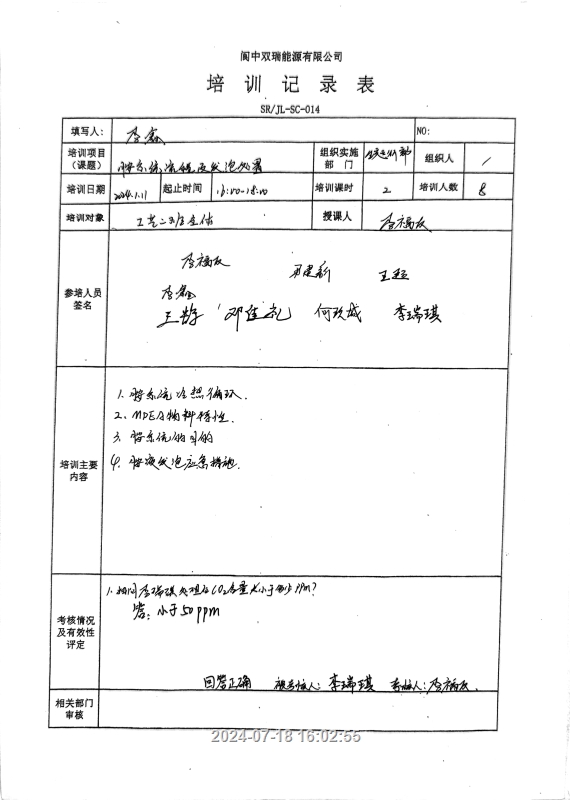 阆中双瑞能源有限公司
培 训 记 录 表
SR/JL-SC-014
填写人: 李鑫 NO:
培训项目(课题) 胺系统流程及发泡处置 组织实施部门 生产技术部 组织人 /
培训日期 2024.1.11 起止时间 16:00-18:00 培训课时 2 培训人数 8
培训对象 工艺二班全体 授课人 李福友
参培人员签名
李福友 王超
李鑫
何玖城 李瑞琪
培训主要内容
1. 胺系统冷热循环.
2、MDEA物料特性.
3. 胺系统的目的
4. 胺液发泡应急措施.
考核情况及有效性评定
1. 提问李瑞琪处理后CO2含量应小于多少PPM?
答: 小于50PPM
回答正确 被考核人: 李瑞琪 考核人: 李福友.
相关部门审核
2024-07-18 16:02:55